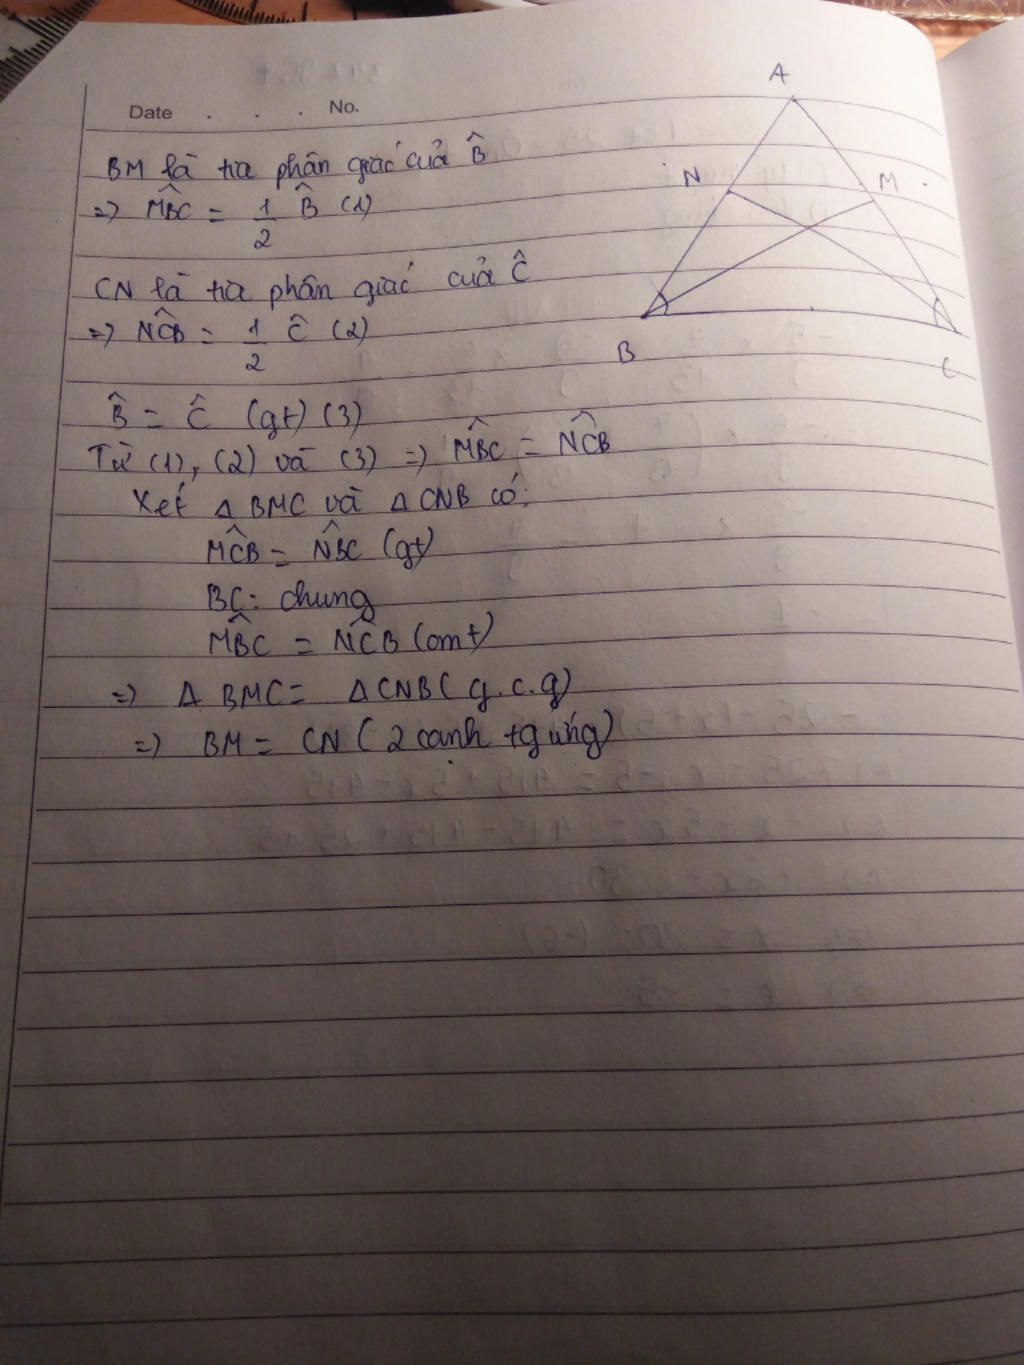 Date . . . No.
BM là tia phân giác của B̂
=> MB̂C = 1/2 B̂ (1)
CN là tia phân giác của Ĉ
=> NĈB = 1/2 Ĉ (2)
B̂ = Ĉ (gt) (3)
Từ (1), (2) và (3) => MB̂C = NĈB
Xét Δ BMC và Δ CNB có:
MĈB = NB̂C (gt)
BC: chung
MB̂C = NĈB (cmt)
=> Δ BMC = Δ CNB (g.c.g)
=> BM = CN (2 cạnh tg ứng)
A
N
M
B
C